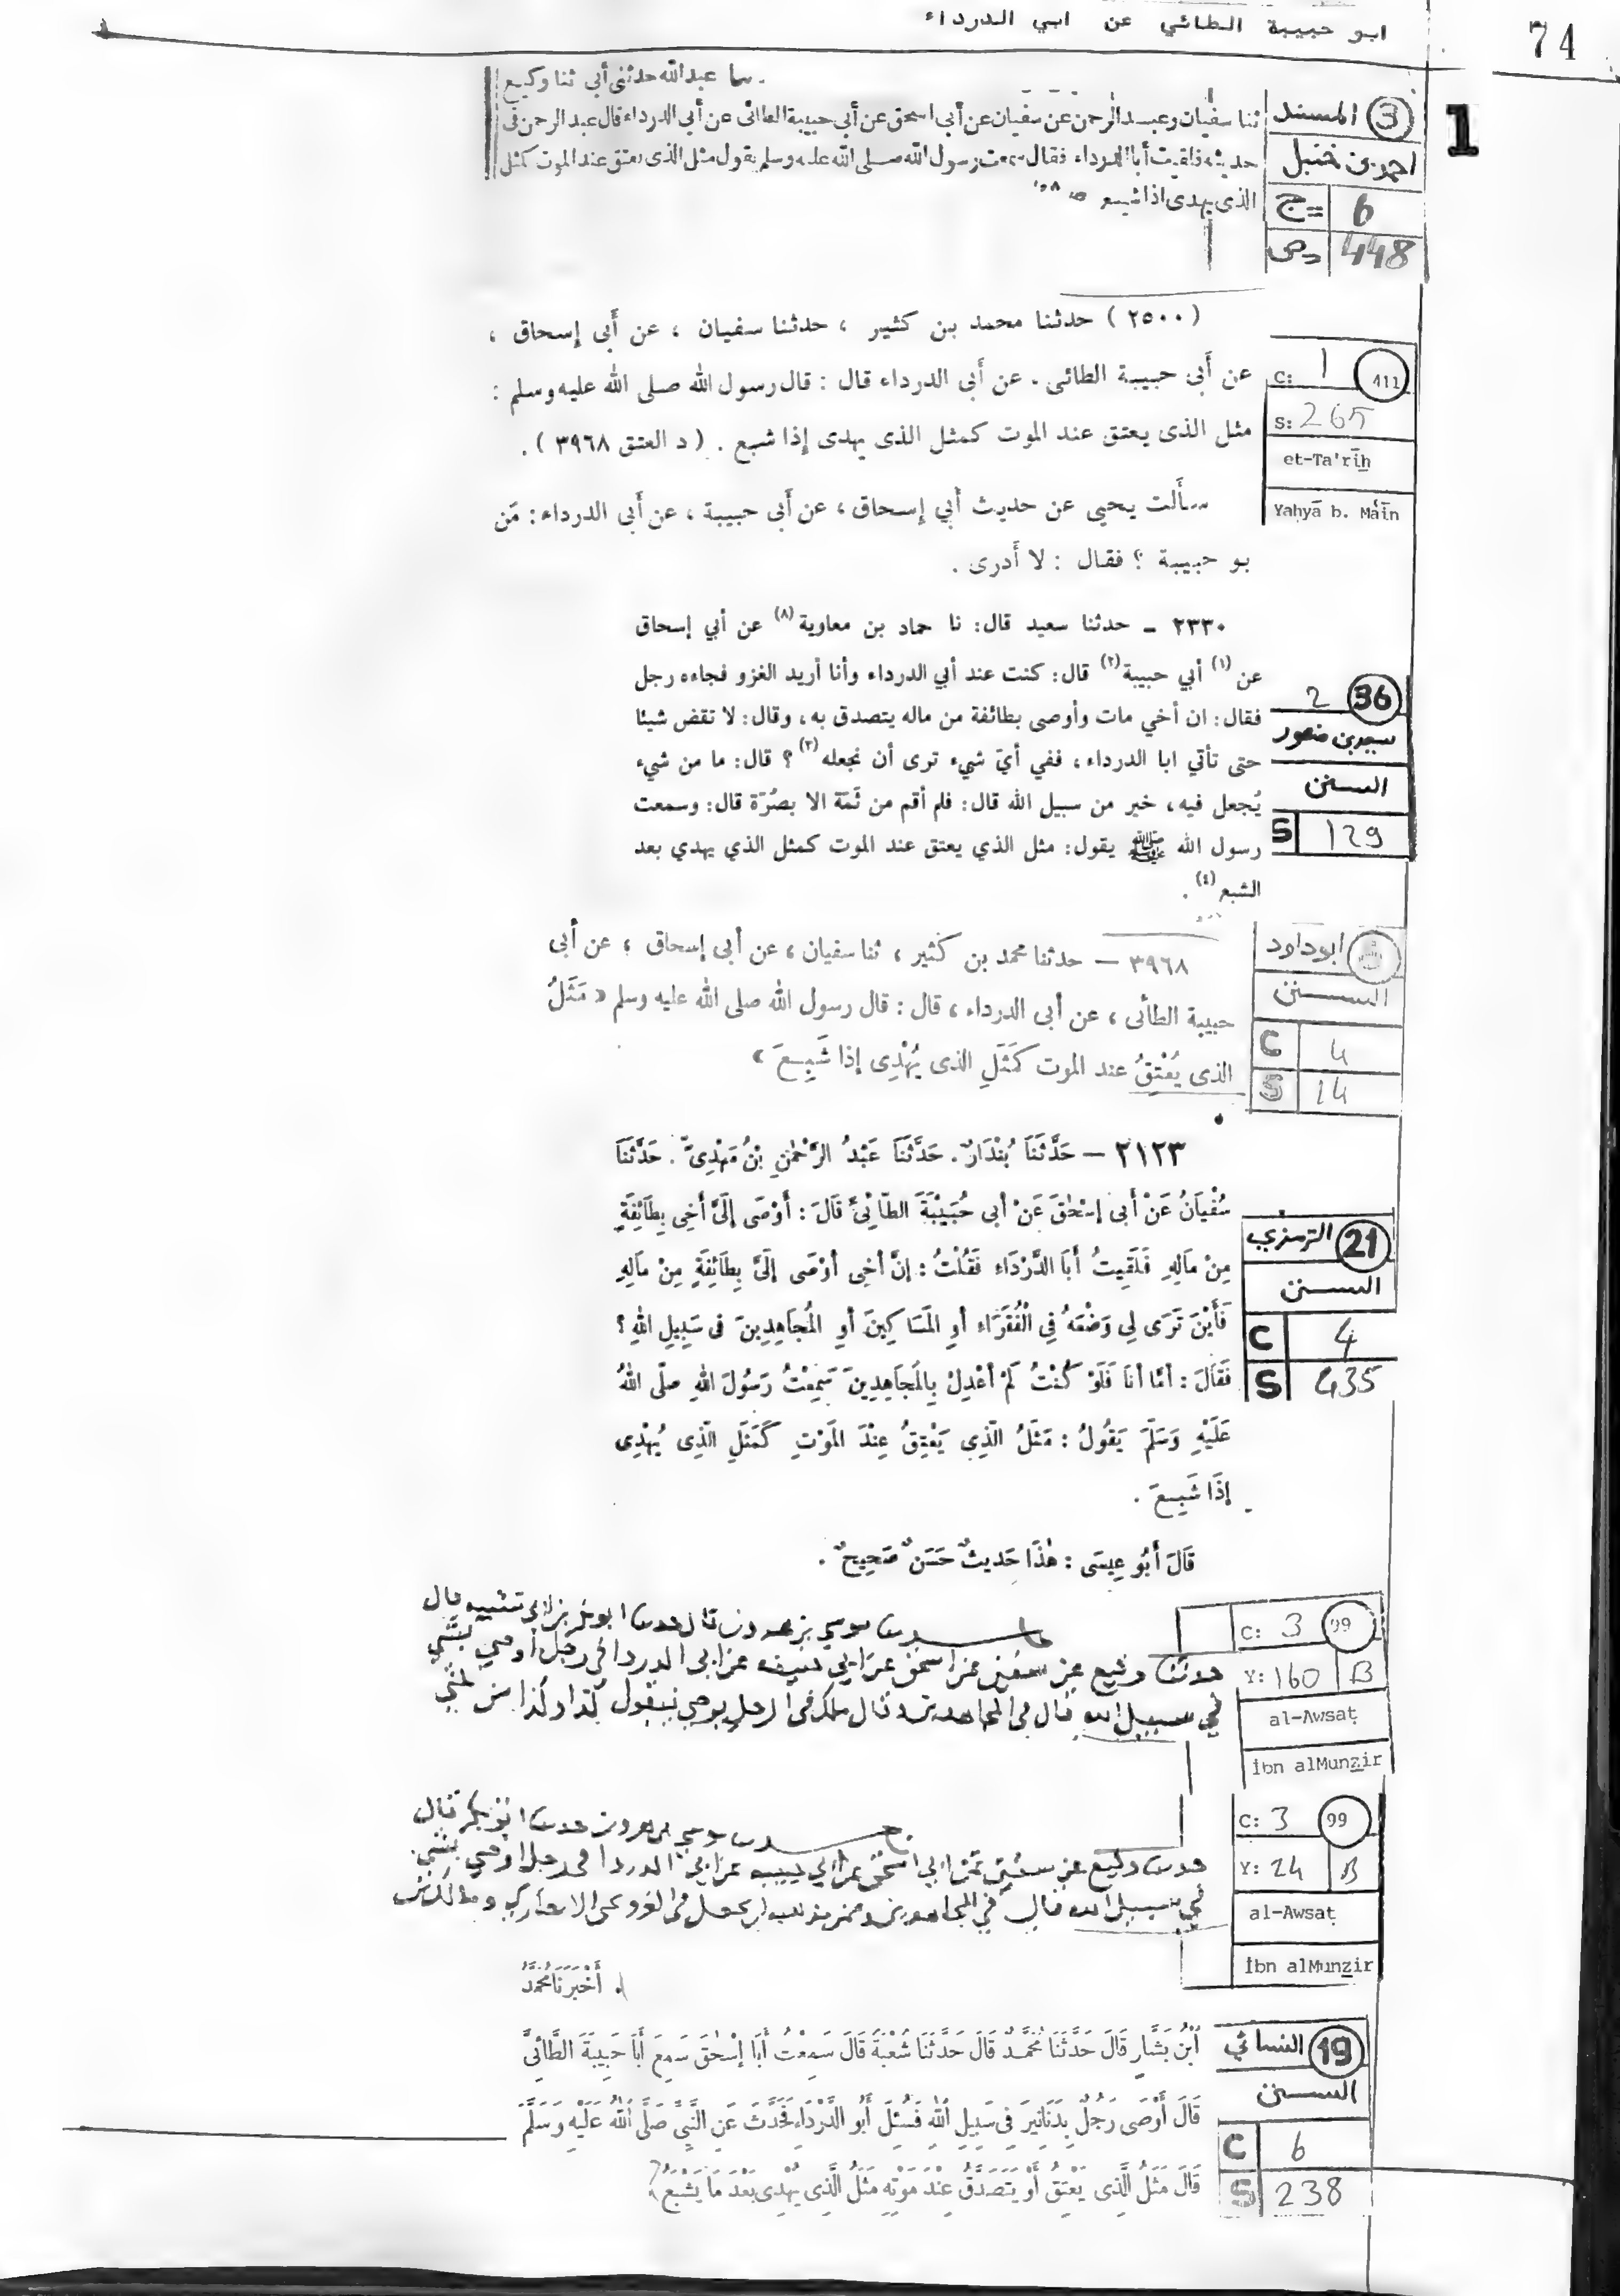 ابو حبيبة الطائي عن ابي الدرداء
74
عبد الله حدثنى أبي ثنا وكيع
ثنا سفيان وعبد الرحمن عن سفيان عن أبي اسحق عن أبي حبيبة الطائى عن أبي الدرداء قال عبد الرحمن فى
حديثه فلقيت أبا الدرداء فقال سمعت رسول الله صلى الله عليه وسلم يقول مثل الذى يعتق عند الموت كمثل
الذى يهدى اذا شبع
3 المسند
احمد بن حنبل
ج= 6
ص= 448
1
(٢٥٠٠) حدثنا محمد بن كثير ، حدثنا سفيان ، عن أبى إسحاق ،
عن أبى حبيبة الطائى . عن أبى الدرداء قال : قال رسول الله صلى الله عليه وسلم :
مثل الذى يعتق عند الموت كمثل الذى يهدى إذا شبع . ( د العتق ٣٩٦٨ ) .
سألت يحيى عن حديث أبي إسحاق ، عن أبى حبيبة ، عن أبى الدرداء : مَن
بو حبيبة ؟ فقال : لا أدرى .
C: 1 411
S: 265
et-Ta'rīḫ
Yaḥyā b. Māīn
٢٣٣٠ ـ حدثنا سعيد قال: نا حماد بن معاوية (٨) عن أبي إسحاق
عن (١) أبي حبيبة (٢) قال: كنت عند أبي الدرداء وأنا أريد الغزو فجاءه رجل
فقال: ان أخي مات وأوصى بطائفة من ماله يتصدق به، وقال: لا تقض شيئا
حتى تأتي ابا الدرداء، ففي أيّ شيء ترى أن نجعله (٣) ؟ قال: ما من شيء
يُجعل فيه، خير من سبيل الله قال: فلم أقم من ثَمّة الا بصُرّة قال: وسمعت
رسول الله ﷺ يقول: مثل الذي يعتق عند الموت كمثل الذي يهدي بعد
الشبع (٤) .
2 36
سعيد بن منصور
السنن
S 129
٣٩٦٨ — حدثنا محمد بن كثير ، ثنا سفيان ، عن أبى إسحاق ، عن أبى
حبيبة الطائى ، عن أبى الدرداء ، قال : قال رسول الله صلى الله عليه وسلم « مَثَلُ
الذى يُعْتِقُ عند الموت كَمَثَلِ الذى يُهْدِى إذا شَبِعَ »
ابو داود
السنن
C 4
S 14
٢١٢٣ — حَدَّثَنَا بُنْدَارٌ. حَدَّثَنَا عَبْدُ الرَّحْمٰنِ بْنُ مَهْدِىٍّ. حَدَّثَنَا
سُفْيَانُ عَنْ أَبى إِسْحٰقَ عَنْ أبى حُبَيْبَةَ الطّائِىِّ قَالَ : أَوْصَى إِلَىَّ أَخِى بِطَائِفَةٍ
مِنْ مَالِهِ فَلَقِيتُ أَبَا الدَّرْدَاءِ فَقُلْتُ : إِنَّ أَخِى أَوْصَى إِلَىَّ بِطَائِفَةٍ مِنْ مَالِهِ
فَأَيْنَ تَرَى لِى وَضْعَهُ فِى الْفُقَرَاءِ أَوِ المَسَاكِينَ أَوِ المُجَاهِدِينَ فى سَبِيلِ اللهِ ؟
فَقَالَ : أمّا أنَا فَلَوْ كُنْتُ لَمْ أعْدِلْ بِالمُجَاهِدِينَ سَمِعْتُ رَسُولَ اللهِ صلّى اللهُ
عَلَيْهِ وَسَلّمَ يَقُولُ : مَثَلُ الّذِى يَعْتِقُ عِنْدَ المَوْتِ كَمَثَلِ الّذِى يُهْدِى
إذَا شَبِعَ .
قَالَ أَبُو عِيسَى : هٰذَا حَدِيثٌ حَسَنٌ صَحِيحٌ .
21 الترمذي
السنن
C 4
S 435
حدثنا وكيع عن سفين عن ابي اسحق عن ابي حبيبه عن ابي الدردا في رجل اوصى بشي
في سبيل الله قال في المجاهدين
C: 3 99
Y: 160 B
al-Awsaṭ
İbn alMunẕir
حدثنا وكيع عن سفين عن ابي اسحق عن ابي حبيبه عن ابي الدردا في رجل اوصى بشي
في سبيل الله قال في المجاهدين
C: 3 99
Y: 24 B
al-Awsaṭ
İbn alMunẕir
أَخْبَرَنَا مُحَمَّدُ
ابْنُ بَشَّارٍ قَالَ حَدَّثَنَا مُحَمَّدٌ قَالَ حَدَّثَنَا شُعْبَةُ قَالَ سَمِعْتُ أَبَا إِسْحٰقَ سَمِعَ أَبَا حَبِيبَةَ الطَّائِىَّ
قَالَ أَوْصَى رَجُلٌ بِدَنَانِيرَ فِى سَبِيلِ اللهِ فَسُئِلَ أَبُو الدَّرْدَاءِ فَحَدَّثَ عَنِ النَّبِىِّ صَلَّى اللهُ عَلَيْهِ وَسَلَّمَ
قَالَ مَثَلُ الَّذِى يَعْتِقُ أَوْ يَتَصَدَّقُ عِنْدَ مَوْتِهِ مَثَلُ الَّذِى يُهْدِى بَعْدَ مَا يَشْبَعُ
19 النسائي
السنن
C 6
S 238